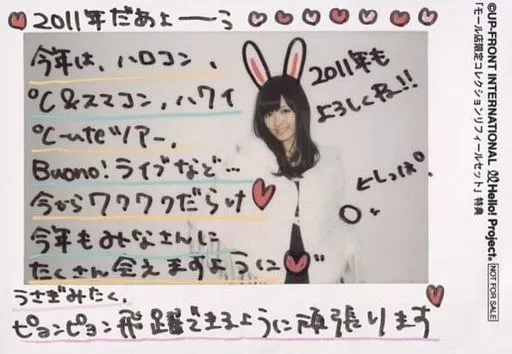 2011年だぁよーーう
今年は、ハロコン、
℃&スマコン、ハワイ
℃-uteツアー、
Buono!ライブなど…
今からワクワクだらけ
今年もみなさんに
たくさん会えますように
うさぎみたく、
ピョンピョン飛躍できるように頑張ります
2011年も
よろしくね!!
←しっぽ。
©UP-FRONT INTERNATIONAL Hello! Project. NOT FOR SALE
「モール店限定コレクションリフィールセット」特典